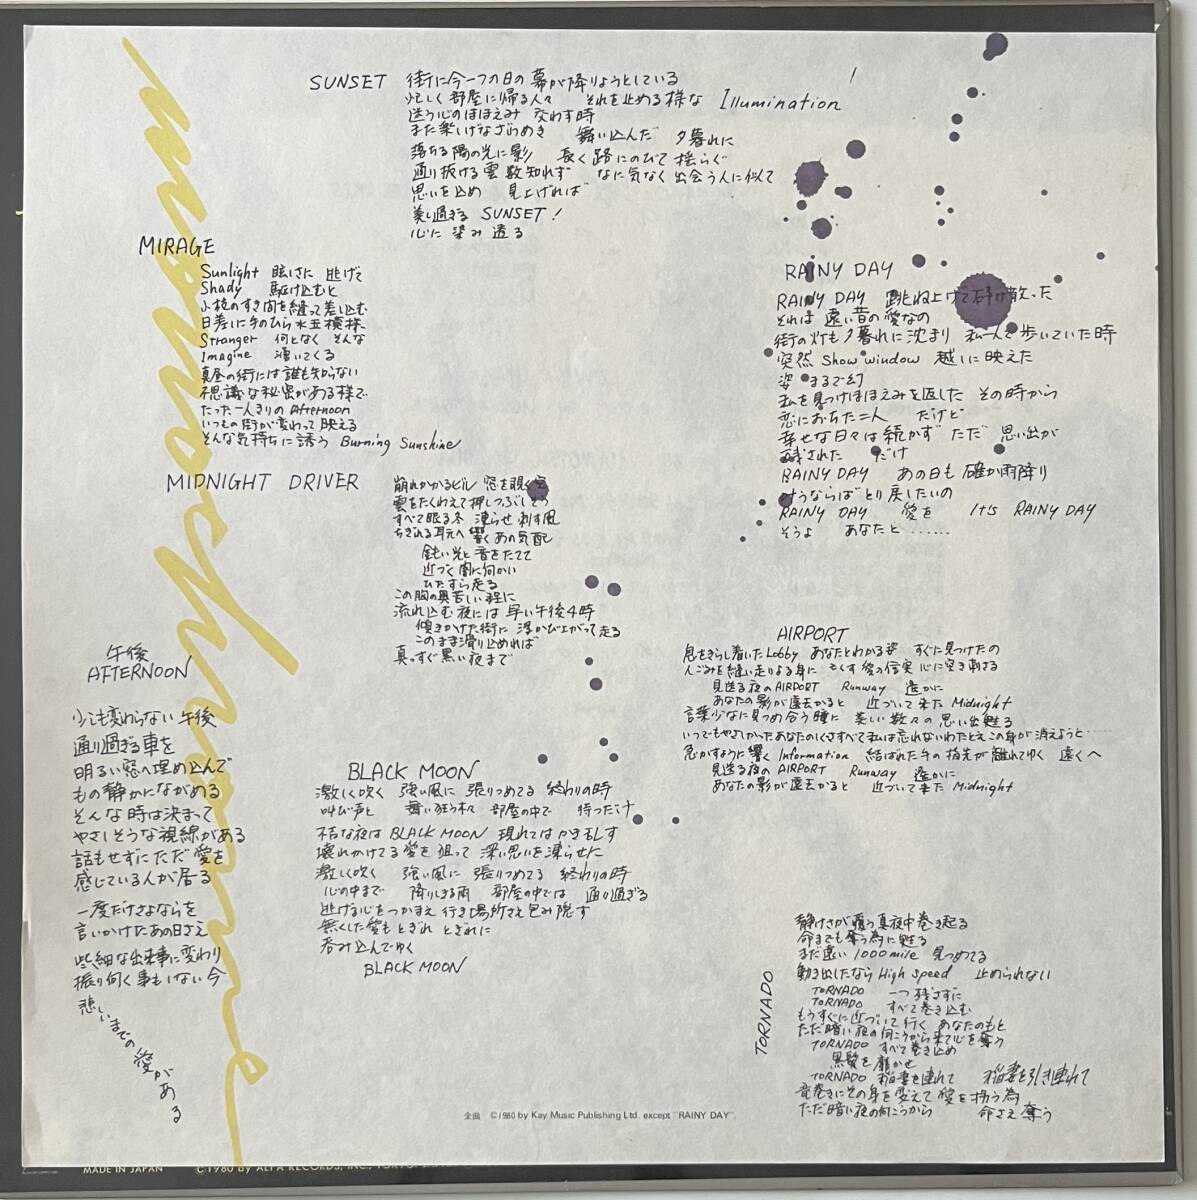 monochrome
SUNSET
街に今一つの日の幕が降りようとしている
忙しく部屋に帰る人々 それを止める様な Illumination
迷う心のほほえみ 交わす時
また楽しげなざわめき 舞い込んだ 夕暮れに
落ちる陽の光に影 長く路にのびて揺らぐ
通り抜ける雲数知れず なに気なく出会う人に似て
思いを込め 見上げれば
美し過ぎる SUNSET!
心に 染み透る
MIRAGE
Sunlight 眩しさに 逃げて
Shady 駆け込むと
小枝のすき間を縫って差し込む
日差しに手のひら水玉模様
Stranger 何となく そんな
Imagine 湧いてくる
真昼の街には誰も知らない
不思議な秘密がある様で
たった一人きりの Afternoon
いつもの街が変わって映える
そんな気持ちに誘う Burning Sunshine
RAINY DAY
RAINY DAY 跳ね上げて砕け散った
それは 遠い昔の愛なの
街の灯も夕暮れに沈まり 私一人で歩いていた時
突然 Show window 越しに映えた
姿 まるで幻
私を見つけほほえみを返した その時から
恋におちた二人 だけど
幸せな日々は続かず ただ 思い出が
残された だけ
RAINY DAY あの日も 確か雨降り
叶うならばとり戻したいの
RAINY DAY 愛を It's RAINY DAY
そうよ あなたと……
MIDNIGHT DRIVER
崩れかかるビル 窓を覗く空
雲をたくわえて押しつぶしそう
すべて眠る冬 凍らせ 刺す風
ちぎれる耳元へ 響くあの気配
鈍い光と音をたてて
近づく 闇に向かい
ひたすら走る
この胸の奥苦しい程に
流れ込む夜には 早い午後4時
傾きかけた街に 浮かび上がって走る
このまま滑り込めれば
真っすぐ黒い夜まで
AIRPORT
息をきらし着いた Lobby あなたとわかる姿 すぐに見つけたの
人ごみを縫い走りよる身に そらす 愛の信実 心に突き刺さる
見送る夜の AIRPORT Runway 遙かに
あなたの影が遠去かると 近づいて来た Midnight
言葉少なに見つめ合う瞳に 美しい数々の思い出甦る
いつでもやさしかったあなたのしぐさすべて私は忘れないわたとえこの身が消えようと……
急がすように響く Information 結ばれた手の指先が離れてゆく 遠くへ
見送る夜の AIRPORT Runway 遙かに
あなたの影が遠去かると 近づいて来た Midnight
午後
AFTERNOON
少しも変わらない午後
通り過ぎる車を
明るい窓へ埋め込んで
もの静かにながめる
そんな時は決まって
やさしそうな視線がある
話もせずにただ愛を
感じている人が居る
一度だけさよならを
言いかけたあの日さえ
些細な出来事に変わり
振り向く事もしない今
悲しいまでの愛がある
BLACK MOON
激しく吹く 強い風に 張りつめてる 終わりの時
叫び声と 舞い狂う木々 部屋の中で 待つだけ
不吉な夜は BLACK MOON 現れてはかきもしす
壊れかけてる愛を 狙って 深い思いを凍らせた
激しく吹く 強い風に 張りつめてる 終わりの時
心の中まで 降りしきる雨 部屋の中では 通り過ぎる
逃げる心をつかまえ 行き場所さえ包み隠す
無くした愛もとぎれ とぎれに
呑み込んでゆく
BLACK MOON
TORNADO
静けさが覆う真夜中巻き起る
命までも奪う為に甦る
まだ遠い 1000mile 見つめてる
動き出したなら High speed 止められない
TORNADO 一つ残さずに
TORNADO すべて巻き込む
もうすぐに近づいて行く あなたのもと
ただ暗い夜の向こうから来て心を奪う
TORNADO すべて巻き込め
黒髪を靡かせ
TORNADO 稲妻を連れて 稲妻を引き連れて
竜巻きにその身を変えて 愛を拐う為
ただ暗い夜の向こうから 命さえ奪う
全曲 ©1980 by Kay Music Publishing Ltd. except "RAINY DAY".
MADE IN JAPAN ©1980 by ALFA RECORDS, INC., TOKYO